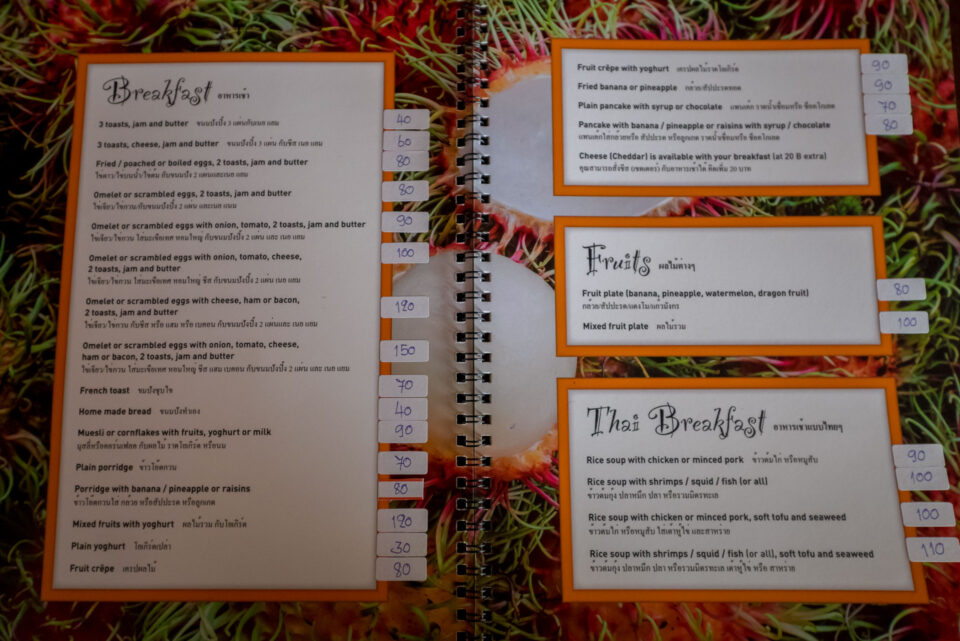 Breakfast อาหารเช้า
3 toasts, jam and butter ขนมปังปิ้ง 3 แผ่นกับเนย แยม 40
3 toasts, cheese, jam and butter ขนมปังปิ้ง 3 แผ่น กับชีส เนย แยม 60
Fried / poached or boiled eggs, 2 toasts, jam and butter 80
ไข่ดาว/ไข่บนน้ำ/ไข่ต้ม กับขนมปังปิ้ง 2 แผ่นและเนย แยม
Omelet or scrambled eggs, 2 toasts, jam and butter 80
ไข่เจียว/ไข่กวน/กับขนมปังปิ้ง 2 แผ่น และเนย แยม
Omelet or scrambled eggs with onion, tomato, 2 toasts, jam and butter 90
ไข่เจียว/ไข่กวน ใส่มะเขือเทศ หอมใหญ่ กับขนมปังปิ้ง 2 แผ่น และ เนย แยม
Omelet or scrambled eggs with onion, tomato, cheese, 100
2 toasts, jam and butter
ไข่เจียว/ไข่กวน ใส่มะเขือเทศ หอมใหญ่ ชีส กับขนมปังปิ้ง 2 แผ่น และ เนย แยม
Omelet or scrambled eggs with cheese, ham or bacon, 120
2 toasts, jam and butter
ไข่เจียว/ไข่กวน กับชีส หรือ แฮม หรือ เบคอน กับขนมปังปิ้ง 2 แผ่นและ เนย แยม
Omelet or scrambled eggs with onion, tomato, cheese, 150
ham or bacon, 2 toasts, jam and butter
ไข่เจียว/ไข่กวน ใส่มะเขือเทศ หอมใหญ่ ชีส แฮม เบคอน กับขนมปังปิ้ง 2 แผ่น และ เนย แยม
French toast ขนมปังชุบไข่ 70
Home made bread ขนมปังทำเอง 40
Muesli or cornflakes with fruits, yoghurt or milk 90
มูสลี่หรือคอร์นเฟลค กับผลไม้ ราดโยเกิร์ต หรือนม
Plain porridge ข้าวโอ๊ตกวน 70
Porridge with banana / pineapple or raisins 80
ข้าวโอ๊ตกวนใส่ กล้วย หรือสัปปะรด หรือลูกเกด
Mixed fruits with yoghurt ผลไม้รวม กับโยเกิร์ต 120
Plain yoghurt โยเกิร์ตเปล่า 30
Fruit crêpe เครปผลไม้ 80
Fruit crêpe with yoghurt เครปผลไม้ราดโยเกิร์ต 90
Fried banana or pineapple กล้วย/สัปปะรดทอด 90
Plain pancake with syrup or chocolate แพนเค้ก ราดน้ำเชื่อมหรือ ช็อคโกแลต 70
Pancake with banana / pineapple or raisins with syrup / chocolate 80
แพนเค้กใส่กล้วยหรือ สัปปะรด หรือลูกเกด ราดน้ำเชื่อมหรือ ช็อคโกแลต
Cheese (Cheddar) is available with your breakfast (at 20 B extra)
คุณสามารถสั่งชีส (เชดเดอร์) กับอาหารเช้าได้ คิดเพิ่ม 20 บาท
Fruits ผลไม้ต่างๆ
Fruit plate (banana, pineapple, watermelon, dragon fruit) 80
กล้วย/สัปปะรด/แตงโม/แก้วมังกร
Mixed fruit plate ผลไม้รวม 100
Thai Breakfast อาหารเช้าแบบไทยๆ
Rice soup with chicken or minced pork ข้าวต้มไก่ หรือหมูสับ 90
Rice soup with shrimps / squid / fish (or all) 100
ข้าวต้มกุ้ง ปลาหมึก ปลา หรือรวมมิตรทะเล
Rice soup with chicken or minced pork, soft tofu and seaweed 100
ข้าวต้มไก่ หรือหมูสับ ใส่เต้าหู้ไข่ และสาหร่าย
Rice soup with shrimps / squid / fish (or all), soft tofu and seaweed 110
ข้าวต้มกุ้ง ปลาหมึก ปลา หรือรวมมิตรทะเล เต้าหู้ไข่ หรือ สาหร่าย